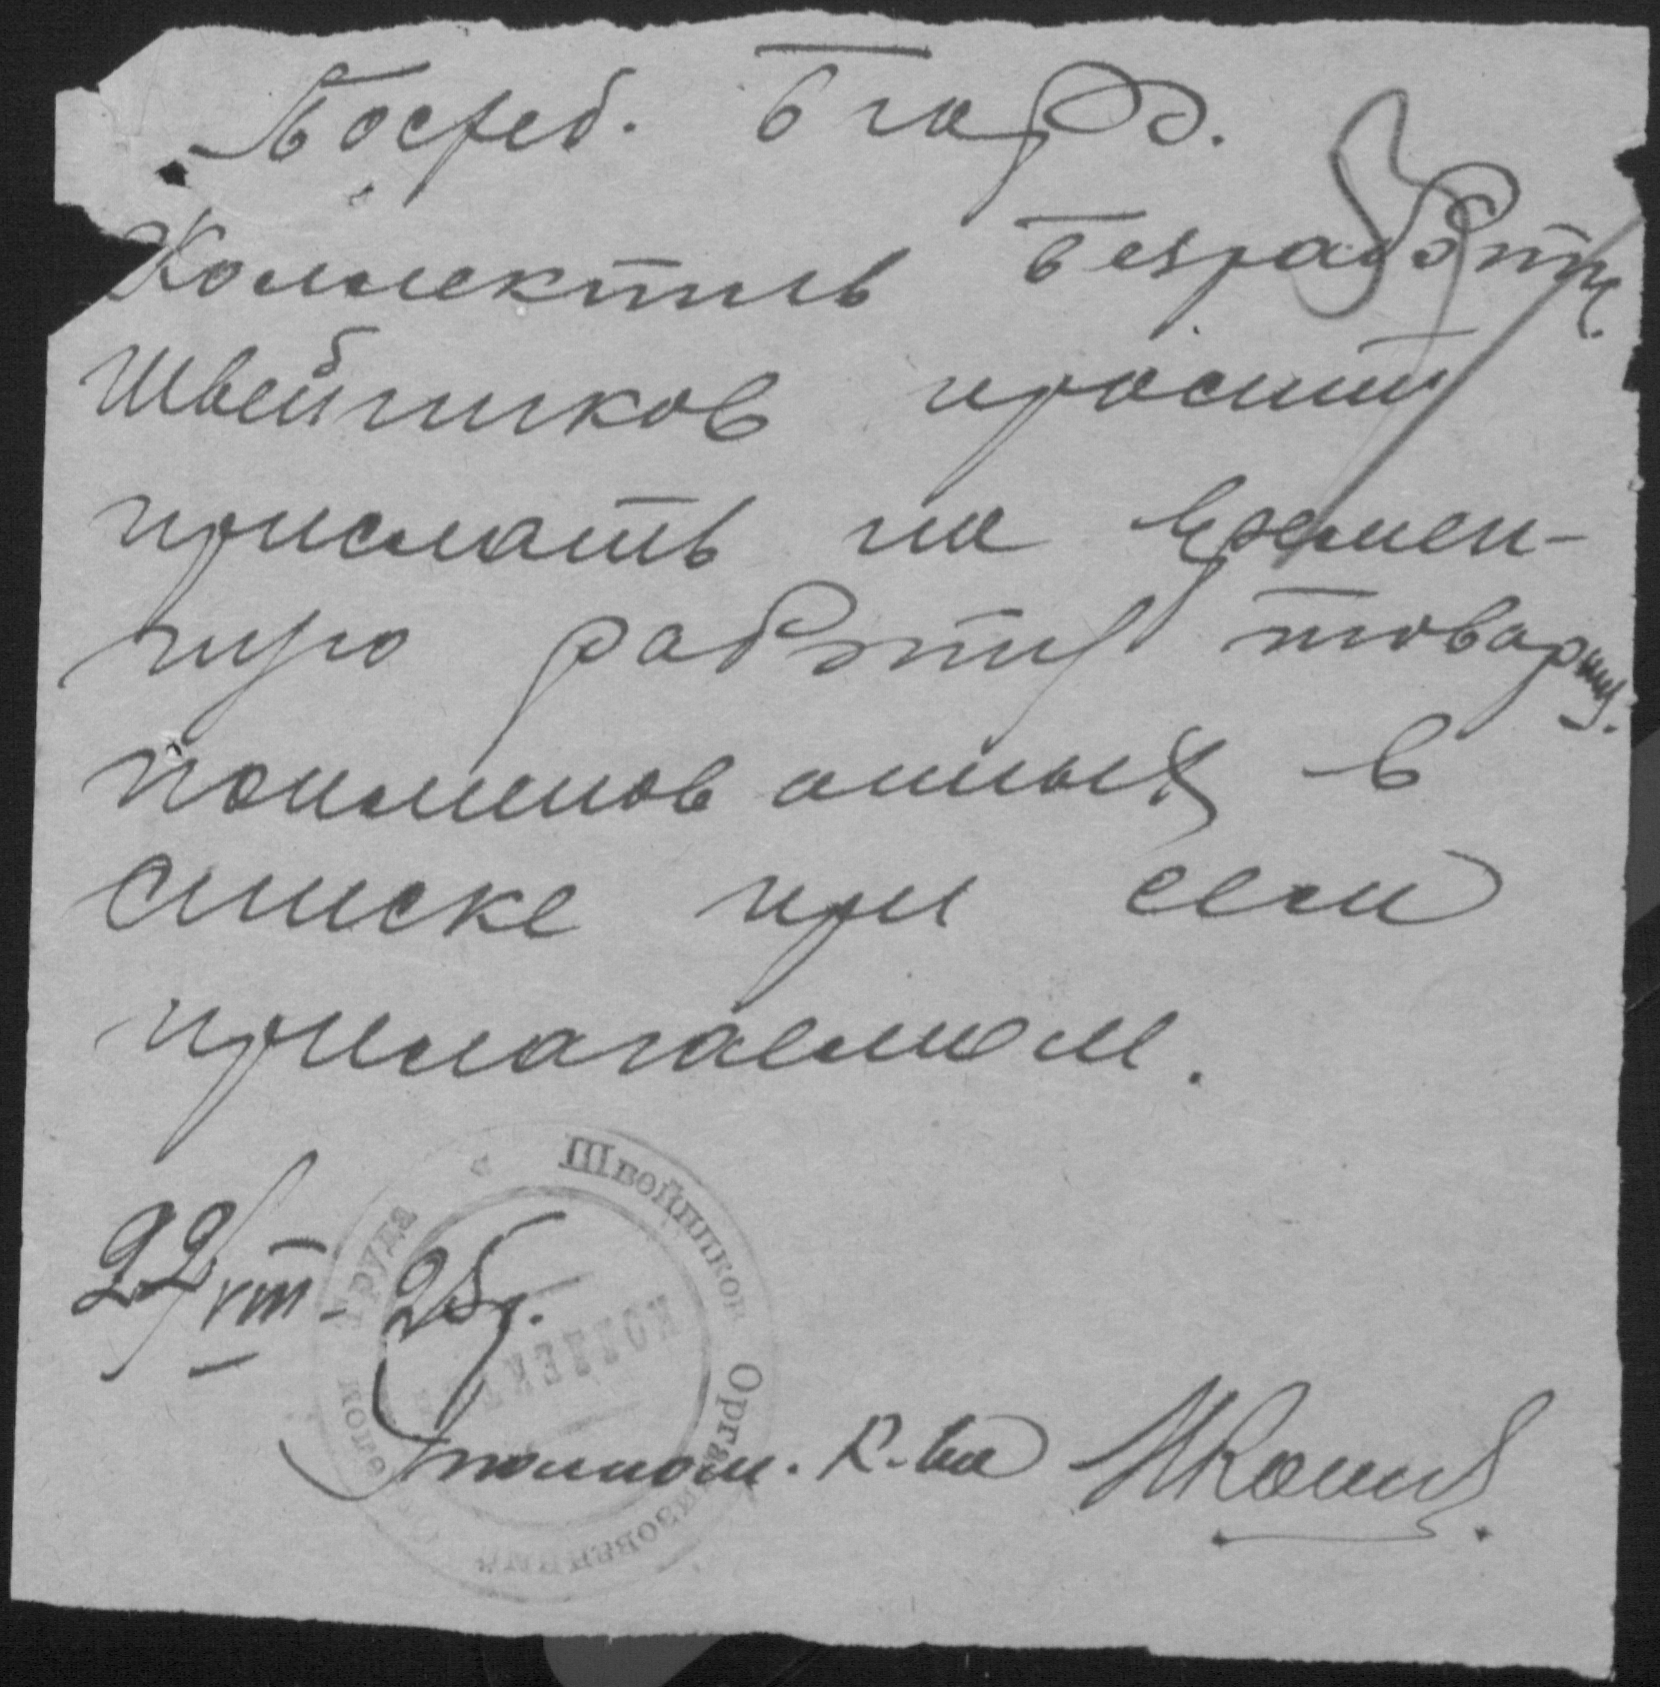 Посред. Бюро.
Коллектив безработн.
Швейников просит
прислать на времен-
ную работу товарищ.
поименованных в
списке при сем
прилагаемом.
22/VIII-25г.
Уполном. К-ва
Швейников Организованный
Труда
КОЛЛЕКТИВ